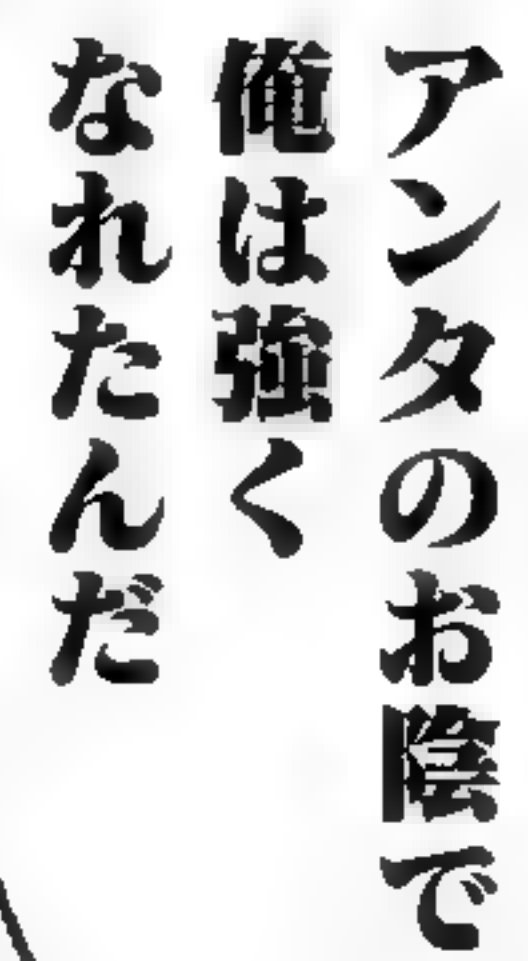 アンタのお陰で
俺は強く
なれたんだ